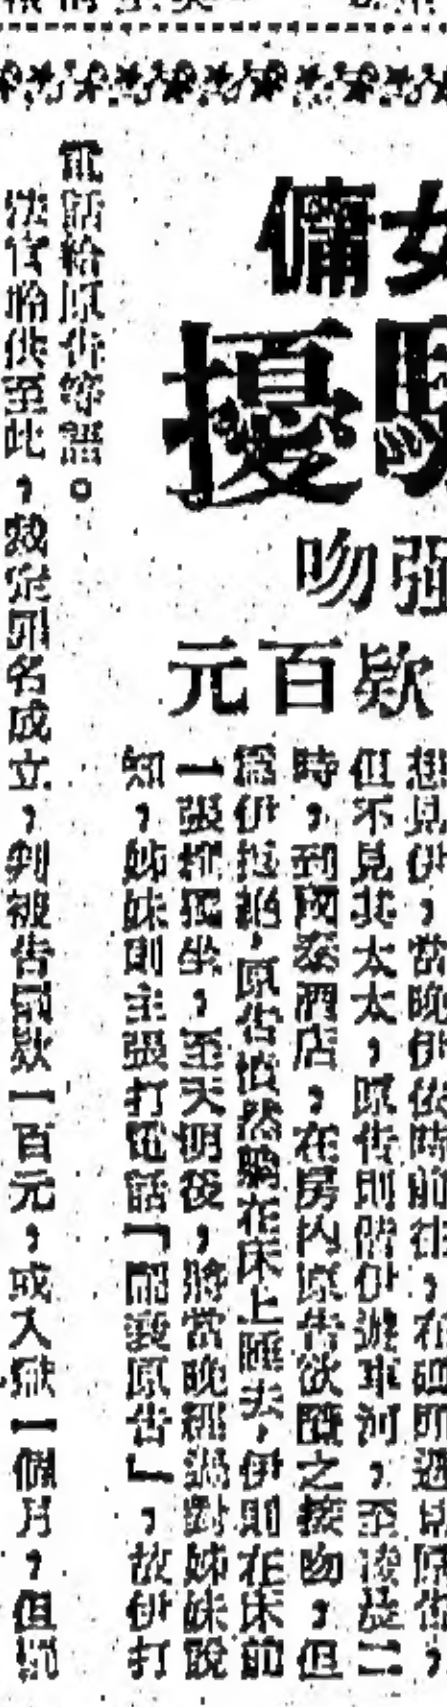 女傭
騷擾
强吻
欵百元
想見伊，當晚伊依時前往，在碼頭遇見原告，
但不見其太太，原告則偕伊遊車河，至凌晨二
時，到國泰酒店，在房內原告欲與之接吻，但
為伊拒絕，原告憤然躺在床上睡去，伊則在床前
一張椅獨坐，至天明後，將當晚經過對姊妹說
知，姊妹則主張打電話「　原告」，故伊打
電話給原告等語。
法官聆供至此，裁定罪名成立，判被告罰欵一百元，或入獄一個月，但